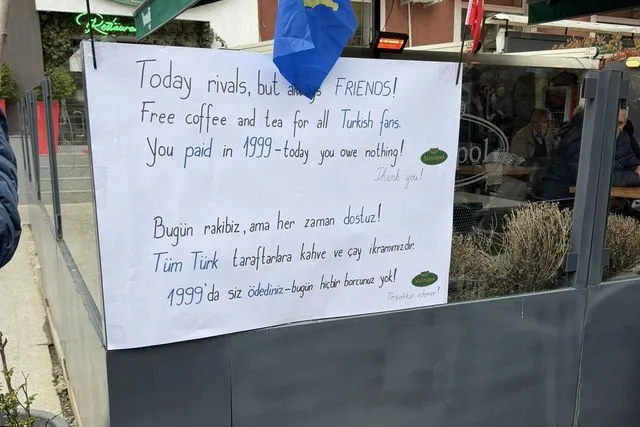 Restaura
Today rivals, but always FRIENDS!
Free coffee and tea for all Turkish fans.
You paid in 1999-today you owe nothing!
Metropol
Thank you!
Bugün rakibiz, ama her zaman dostuz!
Tüm Türk taraftarlara kahve ve çay ikramımızdır.
1999'da siz ödediniz-bugün hiçbir borcunuz yok!
Metropol
Teşekkür ederim!
pol